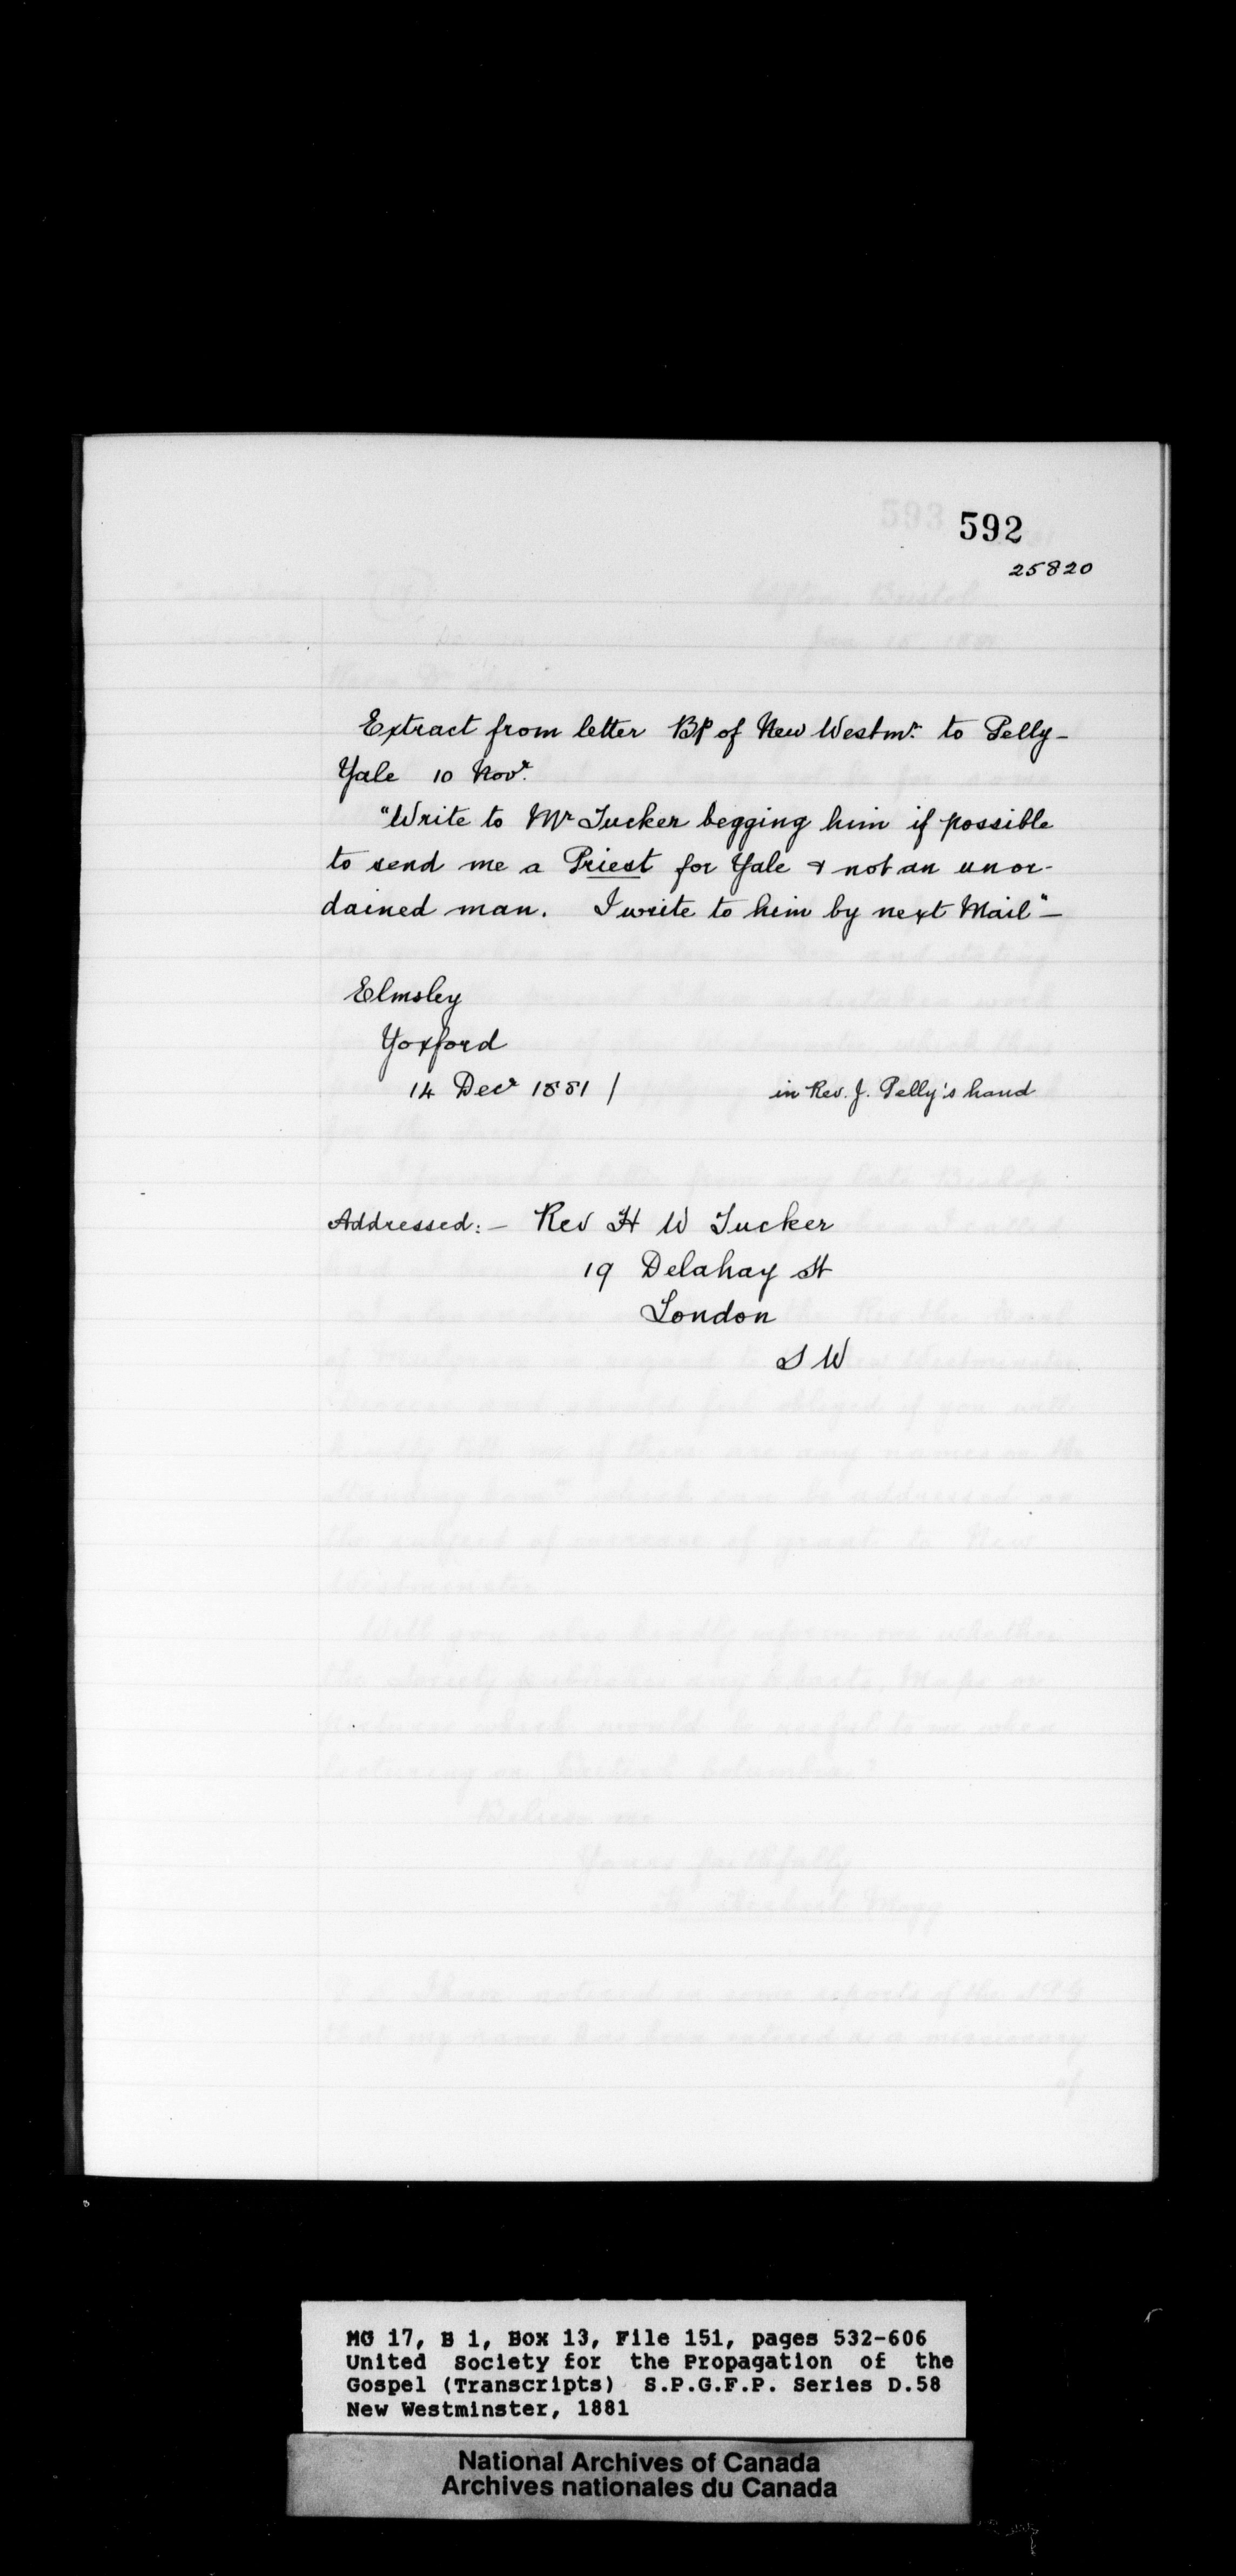 592
25820
Extract from letter Bp of New Westmr. to Pelly -
Yale 10 Novr.
"Write to Mr Tucker begging him if possible
to send me a Priest for Yale & not an unor-
dained man. I write to him by next Mail" -
Elmsley
Yoxford
14 Decr 1881 /
in Rev. J. Pelly's hand
Addressed: - Rev H W Tucker
19 Delahay St
London
S W
MG 17, B 1, Box 13, File 151, pages 532-606
United Society for the Propagation of the
Gospel (Transcripts) S.P.G.F.P. Series D.58
New Westminster, 1881
National Archives of Canada
Archives nationales du Canada